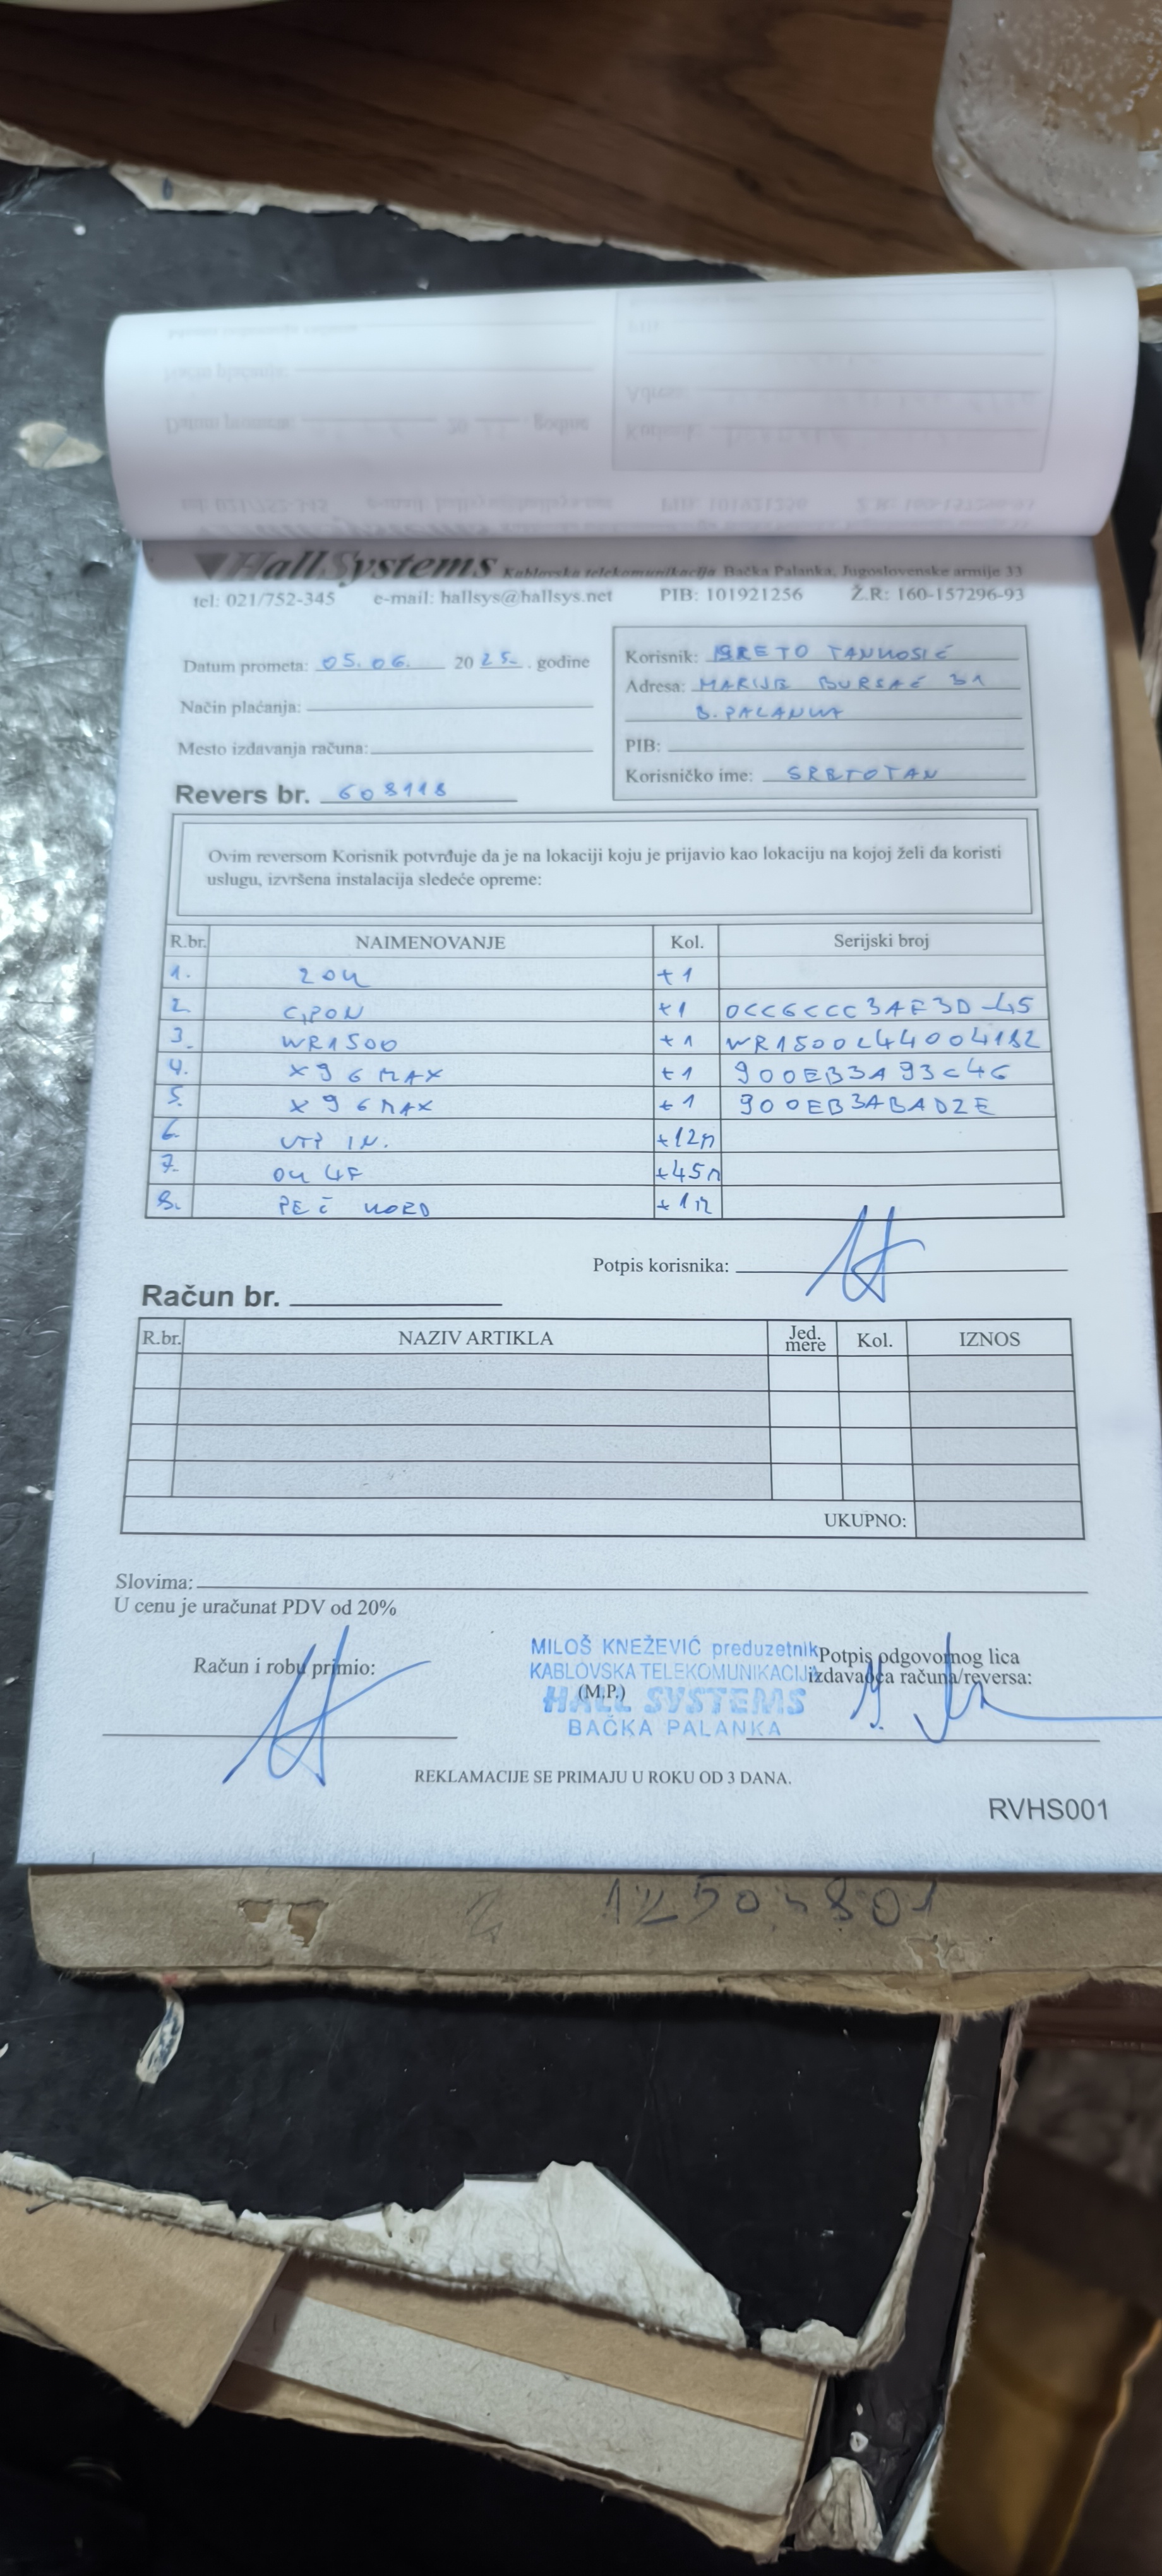 HallSystems Kablovska telekomunikacija Bačka Palanka, Jugoslovenske armije 33
tel: 021/752-345 e-mail: hallsys@hallsys.net PIB: 101921256 Ž.R: 160-157296-93
Datum prometa: 05.06. 2025. godine
Način plaćanja:
Mesto izdavanja računa:
Revers br. 608118
Korisnik: SRETO TANKOSIĆ
Adresa: MARIJE BURSAĆ 31
B. PALANKA
PIB:
Korisničko ime: SRETOTAN
Ovim reversom Korisnik potvrđuje da je na lokaciji koju je prijavio kao lokaciju na kojoj želi da koristi
uslugu, izvršena instalacija sledeće opreme:
R.br. NAIMENOVANJE Kol. Serijski broj
1. ZOK +1
2. GPON +1 0CC6CCC3AF3D-45
3. WR1500 +1 WR1500C44004182
4. X96MAX +1 900EB3A93C46
5. X96MAX +1 900EB3ABAD2E
6. UTP IN. +12m
7. OK 4F +45m
8. PEČ KORD +1m
Potpis korisnika:
Račun br.
R.br. NAZIV ARTIKLA Jed. mere Kol. IZNOS
UKUPNO:
Slovima:
U cenu je uračunat PDV od 20%
Račun i robu primio:
MILOŠ KNEŽEVIĆ preduzetnik
KABLOVSKA TELEKOMUNIKACIJA
(M.P.)
HALL SYSTEMS
BAČKA PALANKA
Potpis odgovornog lica
izdavaoca računa/reversa:
REKLAMACIJE SE PRIMAJU U ROKU OD 3 DANA.
RVHS001